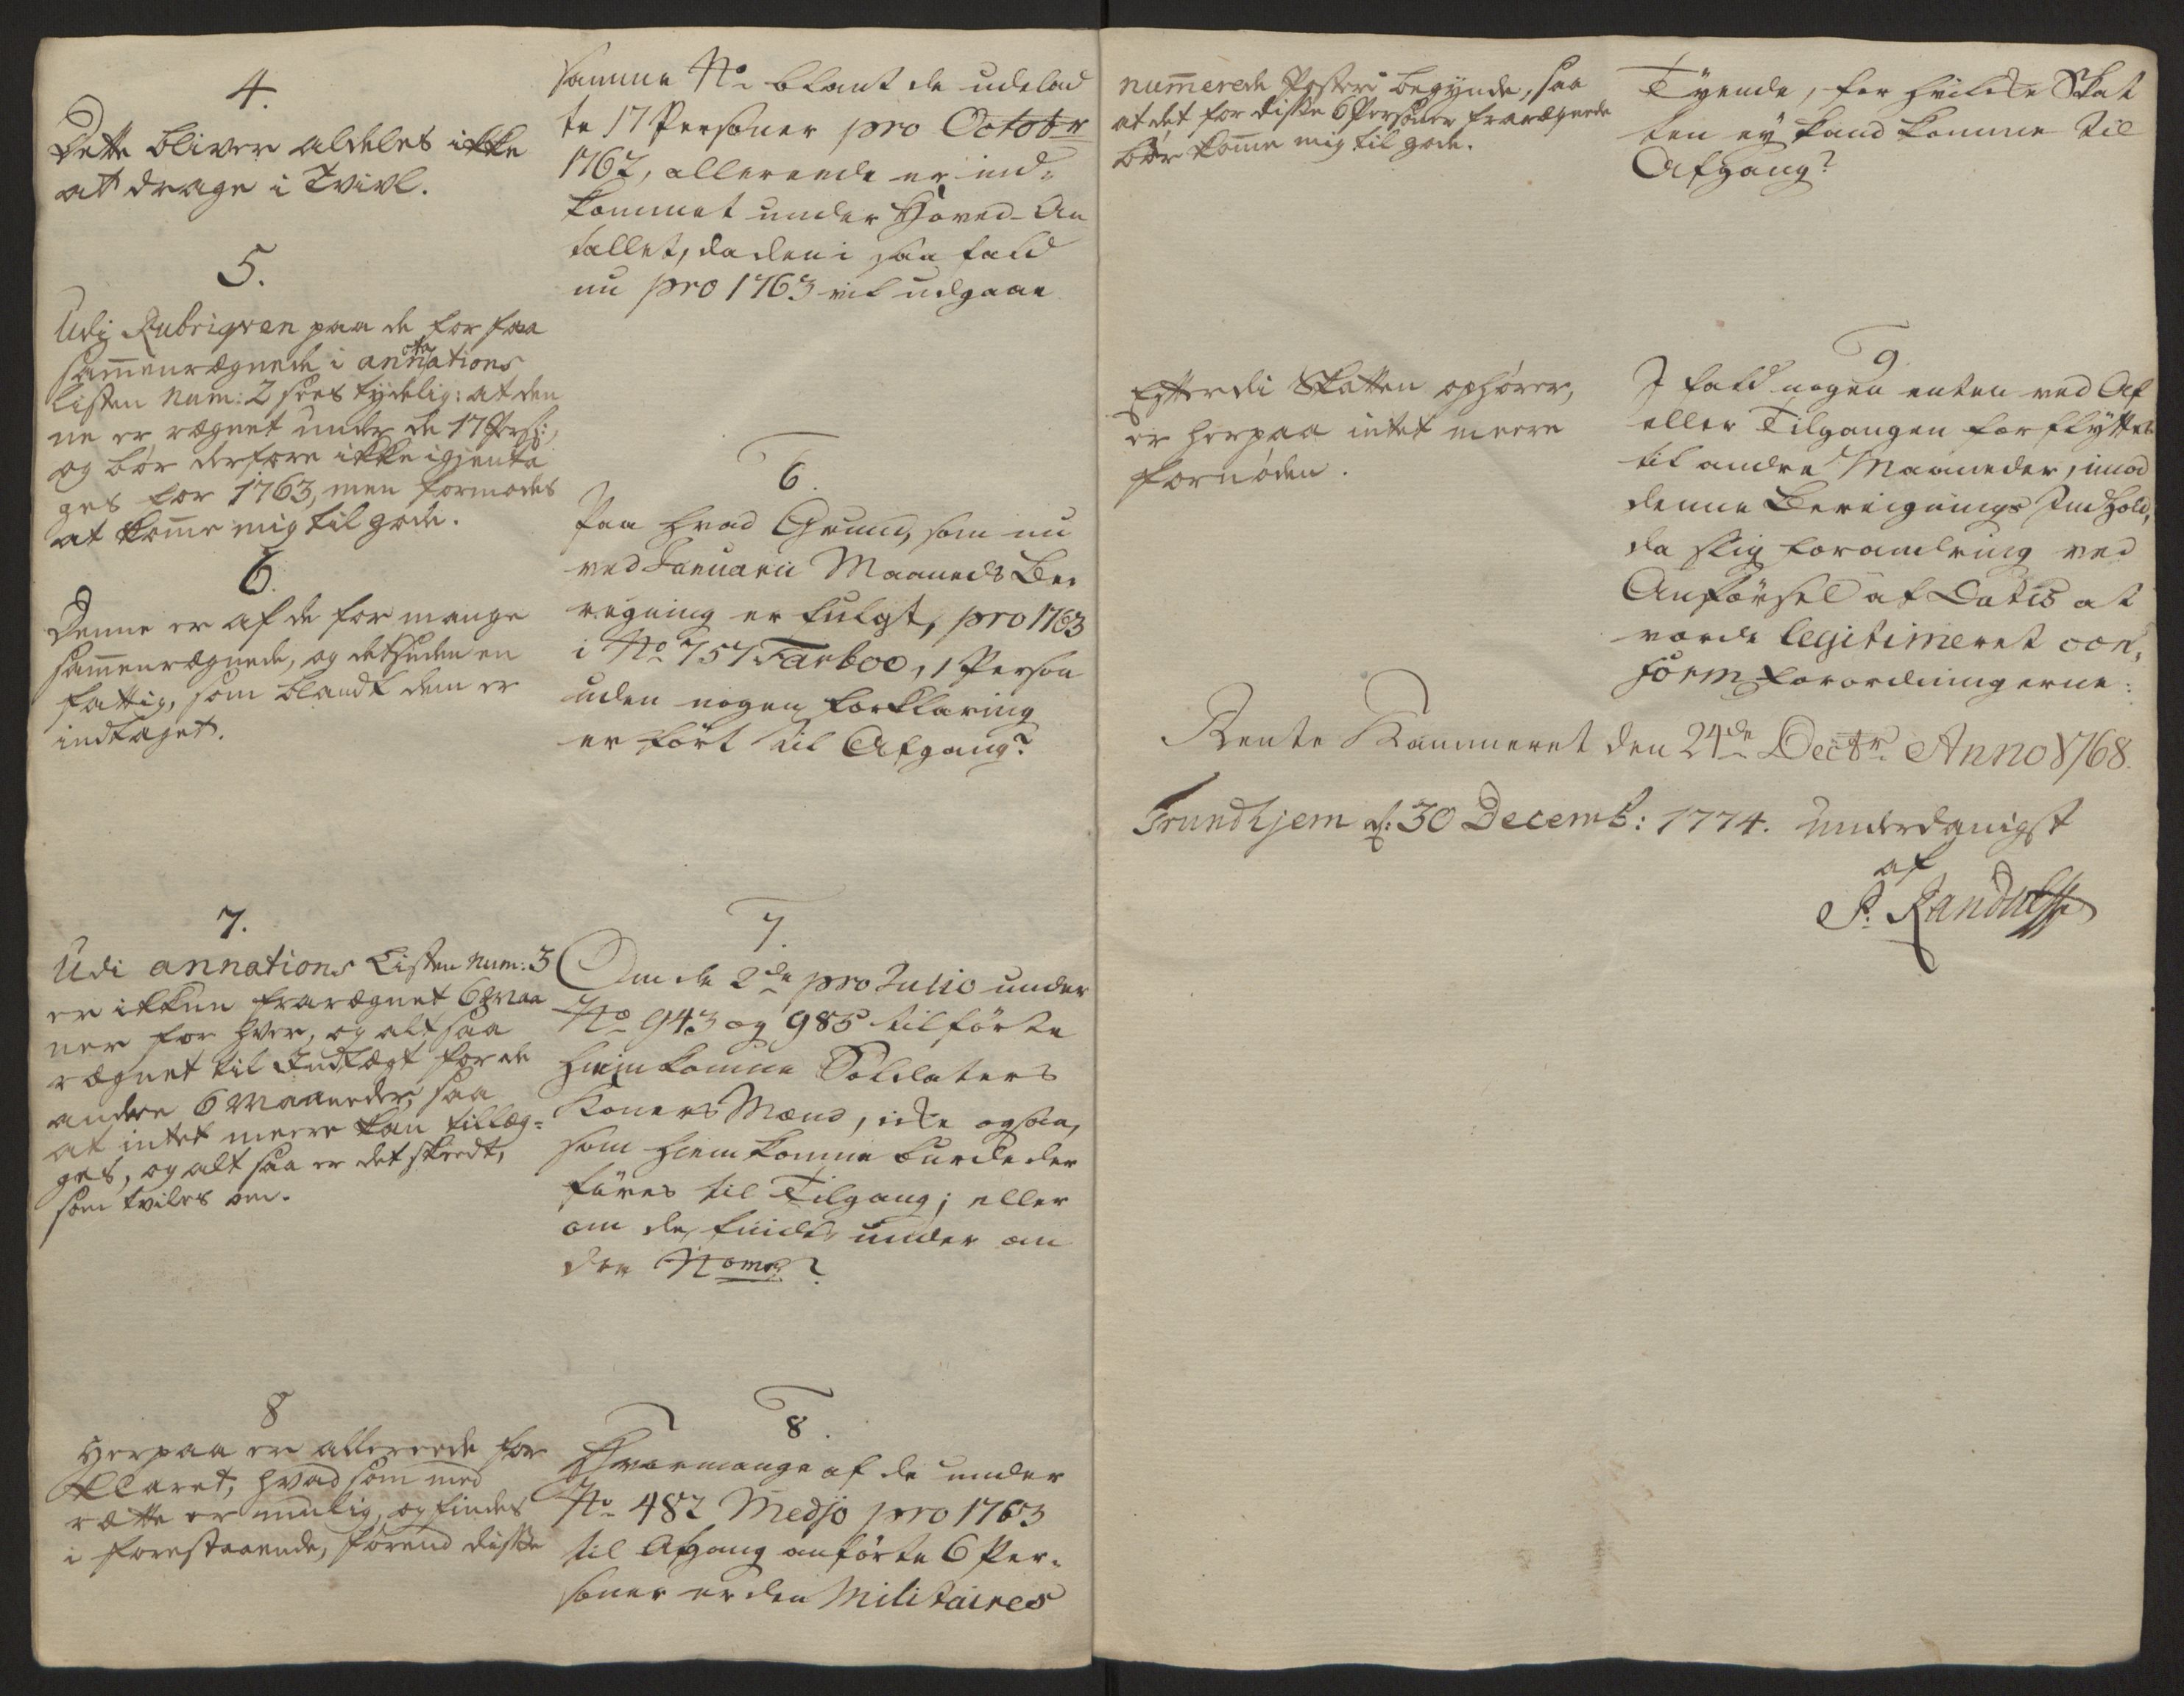 4.
Dette bliver aldeles ikke
at drage i Tvivl.
5.
Udj Rubriqven paa de for faa
sammenregnede i annotations
Listen Num: 2 sees tydelig: at den
ne er regnet under de 17 Pers:,
og bør derfore ikke igjenta
ges for 1763, men formodes
at komme mig til gode.
6.
Denne er af de for mange
sammenregnede, og desuden en
fattig, som blandt dem er
indtaget.
7.
Udi annations Listen Num: 3
er ikkun fraregnet 6 Maa
neder for hver, og alt saa
regnet til Indtægt for de
andre 6 Maaneder, saa
at intet meere kan tillæg-
ges, og alt saa er det skeedt,
som tviles om.
8
Herpaa er allereede for
klaret, hvad som med
rætte er muelig, og findes
i forestaaende, førend disse
samme No blant de udelad
te 17 Personer pro Octobr
1762, allereede er ind-
kommet under Hoved-An
tallet, da den i saa fald
nu pro 1763 vil udgaae
6.
Paa hvad Grund, som nu
ved Januarii Maaneds Be
regning er fulgt, pro 1763
i No 757 Farboe, 1 Person
uden nogen forklaring
er ført til Afgang?
7.
Om de 2de pro Julio under
No 943 og 985 tilførte
hiemkomne Soldaters
Koners Mænd, icke ogsaa,
som hiemkomne burde der
føres til Tilgang; eller
om de findes under an
dre Nomr?
8.
Hvormange af de under
No 482 Medjø pro 1763
til Afgang anførte 6 Per-
soner er den Militaires
nummerede Poster begynde, saa
at det for disse 6 Personer fraregnede
bør komme mig til gode.
Efterdi Skatten ophører,
er herpaa intet meere
fornøden.
Tyende, for hvilcke Skat
ten ey kand komme til
Afgang?
9.
I fald nogen enten ved Af
eller Tilgangen forflyttes
til andre Maaneder, imod
denne Beregnings Indhold,
da slig forandring ved
Anførsel af Datis at
vorde legitimeret con-
form Forordningerne:
Rente Kammeret den 24de Decbr Anno 1768.
Trundhjem d: 30 Decemb: 1774. underdanigst
af
P. Randulff